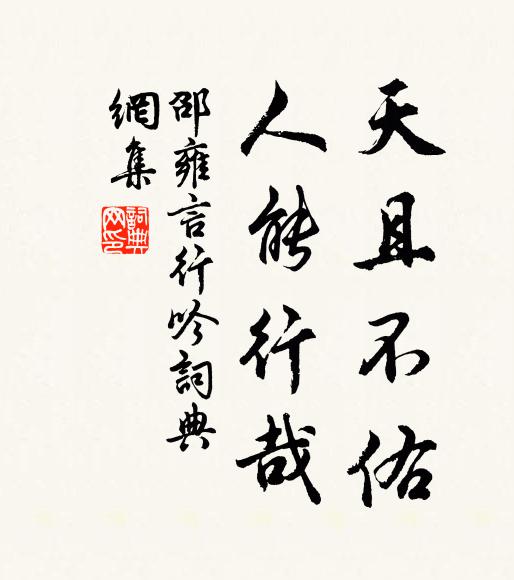 天且不佑
人能行哉
邵雍言行吟詞典
網集
詞典網印